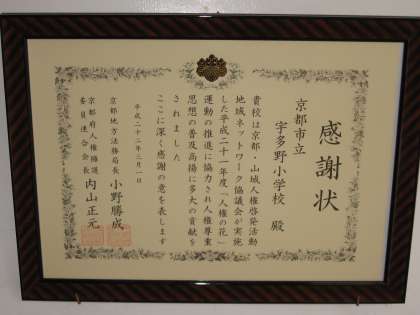 感謝状
京都市立
宇多野小学校 殿
貴校は京都・山城人権啓発活動
地域ネットワーク協議会が実施
した平成二十一年度「人権の花」
運動の推進に協力され人権尊重
思想の普及高揚に多大の貢献を
されました
ここに深く感謝の意を表します
平成二十二年三月一日
京都地方法務局長 小野勝成
京都府人権擁護
委員連合会長 内山正元